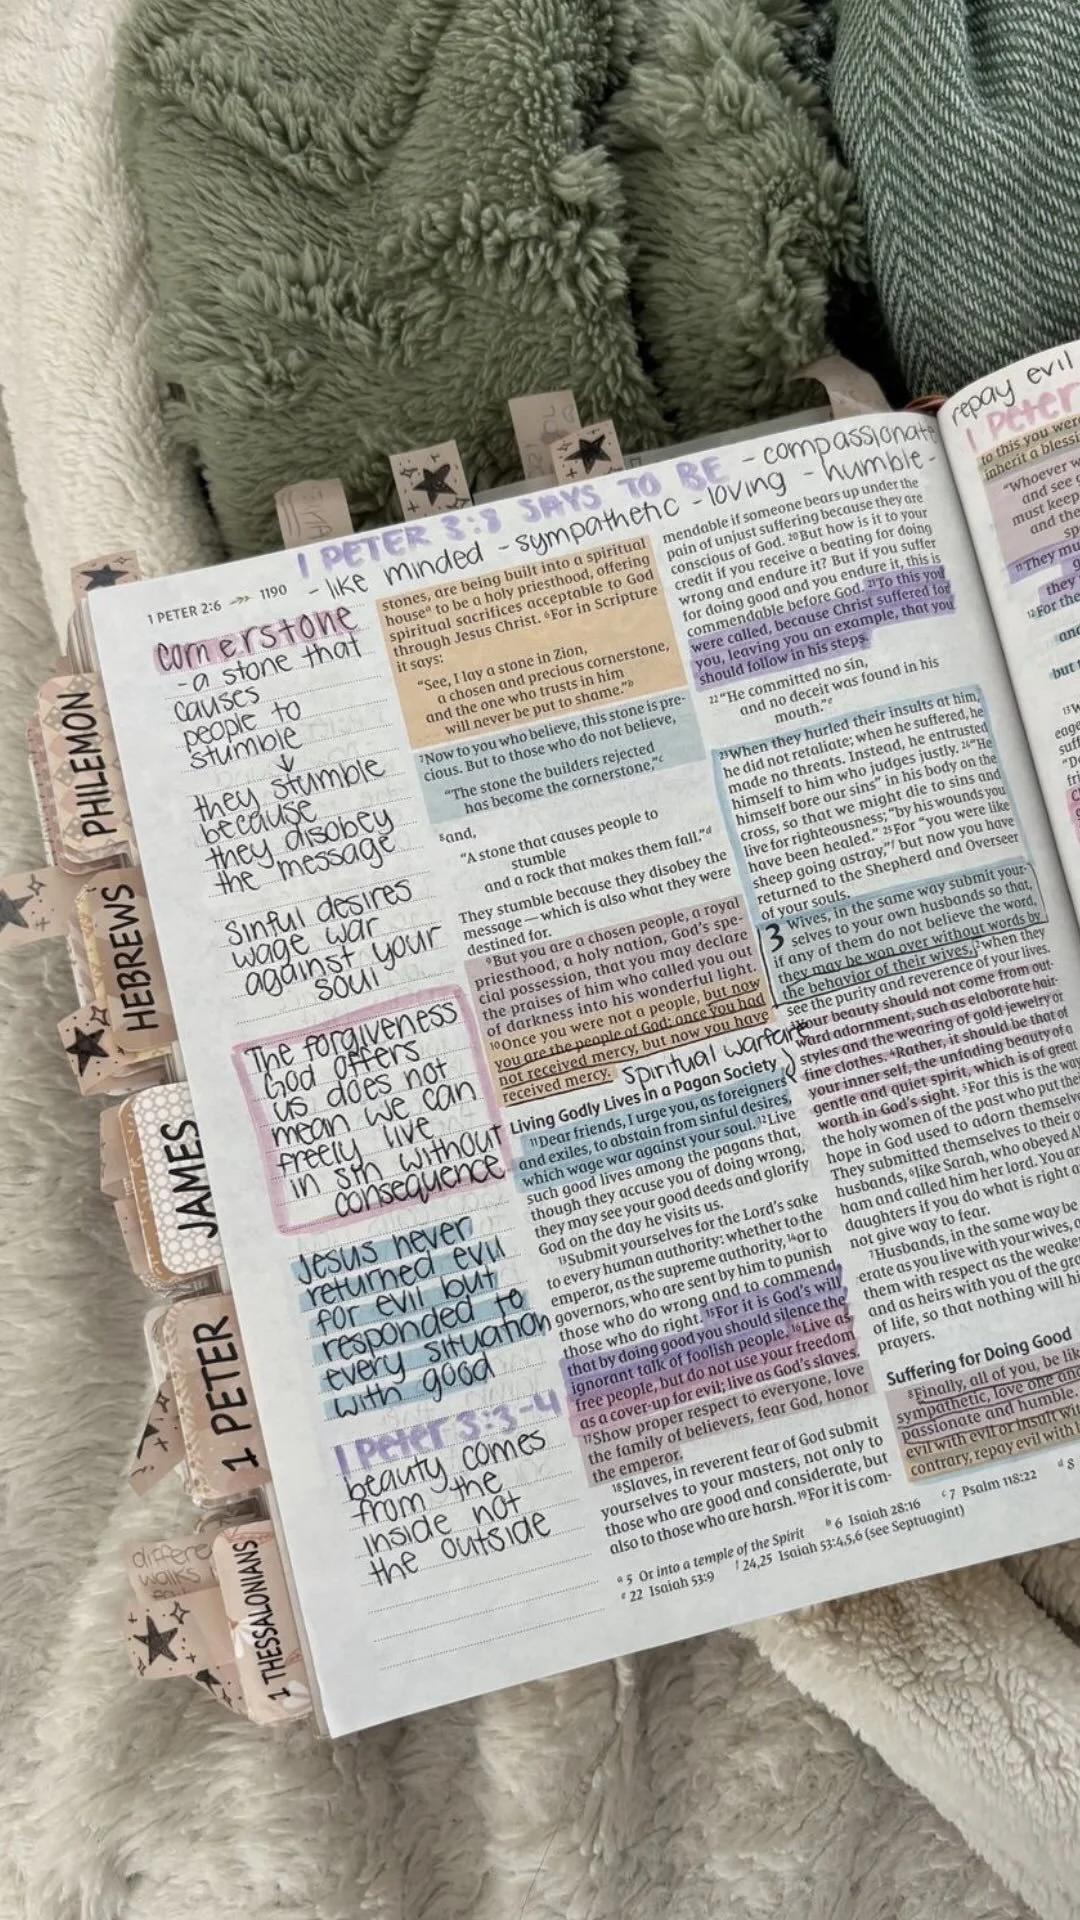 1 PETER 3:8 SAYS TO BE - compassionate
- like minded - sympathetic - loving - humble -
1 PETER 2:6 1190
cornerstone
- a stone that
causes
people to
stumble
↓
they stumble
because
they disobey
the message
Sinful desires
wage war
against your
soul
The forgiveness
God offers
us does not
mean we can
freely live
in sin without
consequence
Jesus never
returned evil
for evil but
responded to
every situation
with good
1 Peter 3:3-4
beauty comes
from the
inside not
the outside
stones, are being built into a spiritual
houseᵃ to be a holy priesthood, offering
spiritual sacrifices acceptable to God
through Jesus Christ. ⁶For in Scripture
it says:
“See, I lay a stone in Zion,
a chosen and precious cornerstone,
and the one who trusts in him
will never be put to shame.”ᵇ
⁷Now to you who believe, this stone is pre-
cious. But to those who do not believe,
“The stone the builders rejected
has become the cornerstone,”ᶜ
⁸and,
“A stone that causes people to
stumble
and a rock that makes them fall.”ᵈ
They stumble because they disobey the
message — which is also what they were
destined for.
⁹But you are a chosen people, a royal
priesthood, a holy nation, God’s spe-
cial possession, that you may declare
the praises of him who called you out
of darkness into his wonderful light.
¹⁰Once you were not a people, but now
you are the people of God; once you had
not received mercy, but now you have
received mercy.
Spiritual warfare
Living Godly Lives in a Pagan Society
¹¹Dear friends, I urge you, as foreigners
and exiles, to abstain from sinful desires,
which wage war against your soul. ¹²Live
such good lives among the pagans that,
though they accuse you of doing wrong,
they may see your good deeds and glorify
God on the day he visits us.
¹³Submit yourselves for the Lord’s sake
to every human authority: whether to the
emperor, as the supreme authority, ¹⁴or to
governors, who are sent by him to punish
those who do wrong and to commend
those who do right. ¹⁵For it is God’s will
that by doing good you should silence the
ignorant talk of foolish people. ¹⁶Live as
free people, but do not use your freedom
as a cover-up for evil; live as God’s slaves.
¹⁷Show proper respect to everyone, love
the family of believers, fear God, honor
the emperor.
¹⁸Slaves, in reverent fear of God submit
yourselves to your masters, not only to
those who are good and considerate, but
also to those who are harsh. ¹⁹For it is com-
mendable if someone bears up under the
pain of unjust suffering because they are
conscious of God. ²⁰But how is it to your
credit if you receive a beating for doing
wrong and endure it? But if you suffer
for doing good and you endure it, this is
commendable before God. ²¹To this you
were called, because Christ suffered for
you, leaving you an example, that you
should follow in his steps.
²²“He committed no sin,
and no deceit was found in his
mouth.”ᵉ
²³When they hurled their insults at him,
he did not retaliate; when he suffered, he
made no threats. Instead, he entrusted
himself to him who judges justly. ²⁴“He
himself bore our sins” in his body on the
cross, so that we might die to sins and
live for righteousness; “by his wounds you
have been healed.” ²⁵For “you were like
sheep going astray,”ᶠ but now you have
returned to the Shepherd and Overseer
of your souls.
3 Wives, in the same way submit your-
selves to your own husbands so that,
if any of them do not believe the word,
they may be won over without words by
the behavior of their wives, ²when they
see the purity and reverence of your lives.
³Your beauty should not come from out-
ward adornment, such as elaborate hair-
styles and the wearing of gold jewelry or
fine clothes. ⁴Rather, it should be that of
your inner self, the unfading beauty of a
gentle and quiet spirit, which is of great
worth in God’s sight. ⁵For this is the way
the holy women of the past who put their
hope in God used to adorn themselve
They submitted themselves to their o
husbands, ⁶like Sarah, who obeyed A
ham and called him her lord. You ar
daughters if you do what is right a
not give way to fear.
⁷Husbands, in the same way be
erate as you live with your wives,
them with respect as the weake
and as heirs with you of the gra
of life, so that nothing will hi
prayers.
Suffering for Doing Good
⁸Finally, all of you, be lik
sympathetic, love one and
passionate and humble.
evil with evil or insult wit
contrary, repay evil with
ᵃ 5 Or into a temple of the Spirit ᵇ 6 Isaiah 28:16 ᶜ 7 Psalm 118:22 ᵈ 8
ᵉ 22 Isaiah 53:9 ᶠ 24,25 Isaiah 53:4,5,6 (see Septuagint)
repay evil
1 Peter
to this you were
inherit a blessi
“Whoever w
and see g
must keep
and the
¹¹They mu
they
¹²For the
and
but
PHILEMON
HEBREWS
JAMES
1 PETER
1 THESSALONIANS
differe
walks